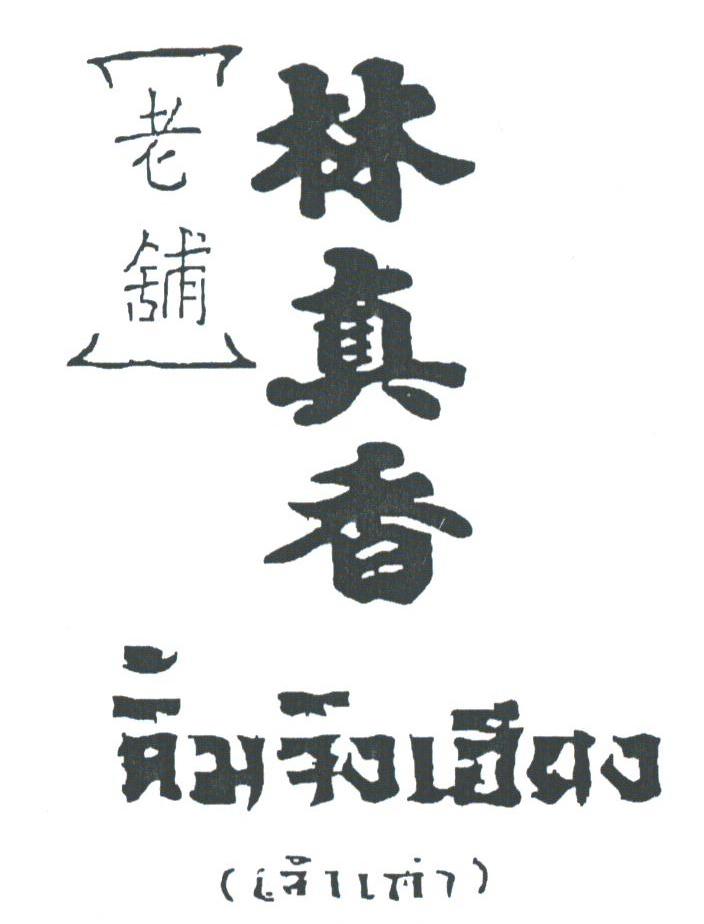 林真香
[老舖]
ลิ้มจิงเฮียง
(เจ้าเก่า)